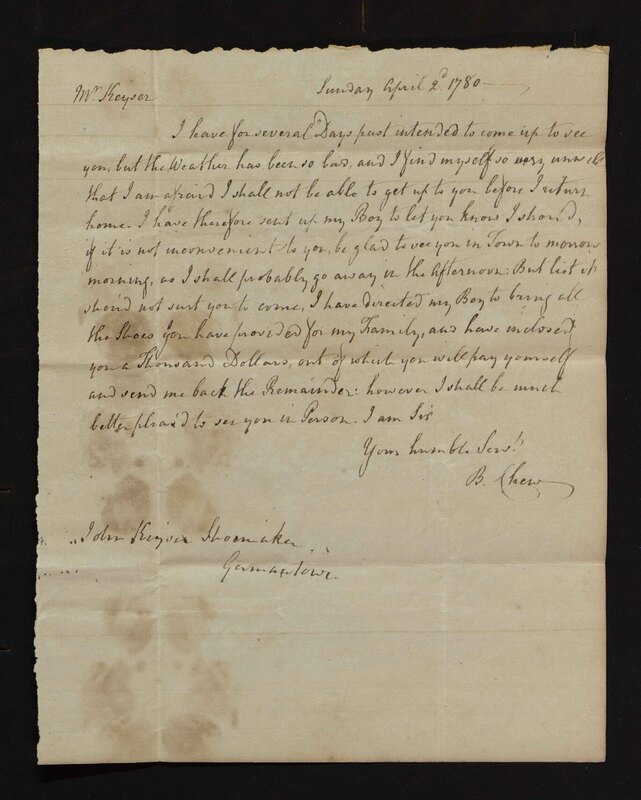 Sunday April 2d. 1780
Mr. Keyser
I have for several Days past intended to come up to see
you, but the Weather has been so bad, and I find myself so very unwell
that I am afraid I shall not be able to get up to you before I return
home. I have therefore sent up my Boy to let you know I should,
if it is not inconvenient to you, be glad to see you in Town to morrow
morning, as I shall probably go away in the Afternoon: But lest it
shou'd not suit you to come, I have directed my Boy to bring all
the Shoes you have provided for my Family, and have inclosed
you a Thousand Dollars, out of which you will pay yourself
and send me back the Remainder: however I shall be much
better pleas'd to see you in Person. I am Sir
Your humble Servt.
B. Chew
John Keyser Shoemaker
Germantown.